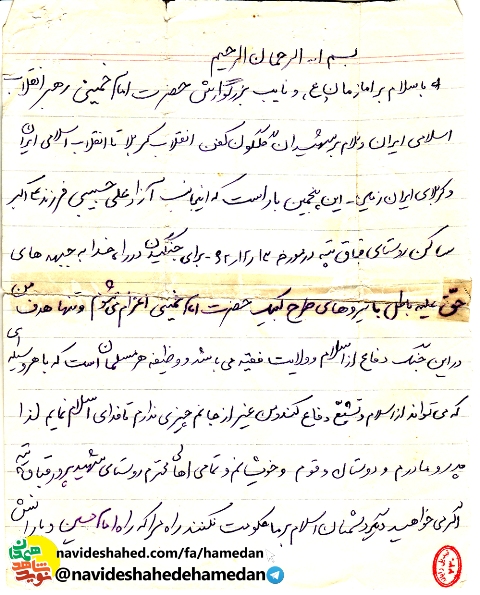 بسم الله الرحمان الرحیم
با سلام بر امام زمان (ع) و نایب بزرگوارش حضرت امام خمینی رهبر انقلاب
اسلامی ایران و سلام بر شهیدان گلگون کفن انقلاب کربلا تا انقلاب اسلامی ایران
و کربلای ایران زمین - این پنجمین بار است که اینجانب آزاد علی حبیبی فرزند علی اکبر
ساکن روستای قباق تپه در مورخه برای جنگیدن در راه خدا به جبهه های
حق علیه باطل با نیروهای طرح لبیک حضرت امام خمینی اعزام می شوم و تنها هدف من
در این جنگ دفاع از اسلام و ولایت فقیه می باشد و وظیفه هر مسلمان است که با هر وسیله ای
که می تواند از اسلام و تشیع دفاع کند و من غیر از جانم چیزی ندارم تا فدای اسلام نمایم لذا
پدر و مادرم و دوستان و قوم و خویشانم و تمامی اهالی محترم روستای شهید پرور قباق تپه
اگر می خواهید دشمنان اسلام بر ما حکومت نکنند راه مرا که راه امام حسین و یارانش
navideshahed.com/fa/hamedan
@navideshahedehamedan